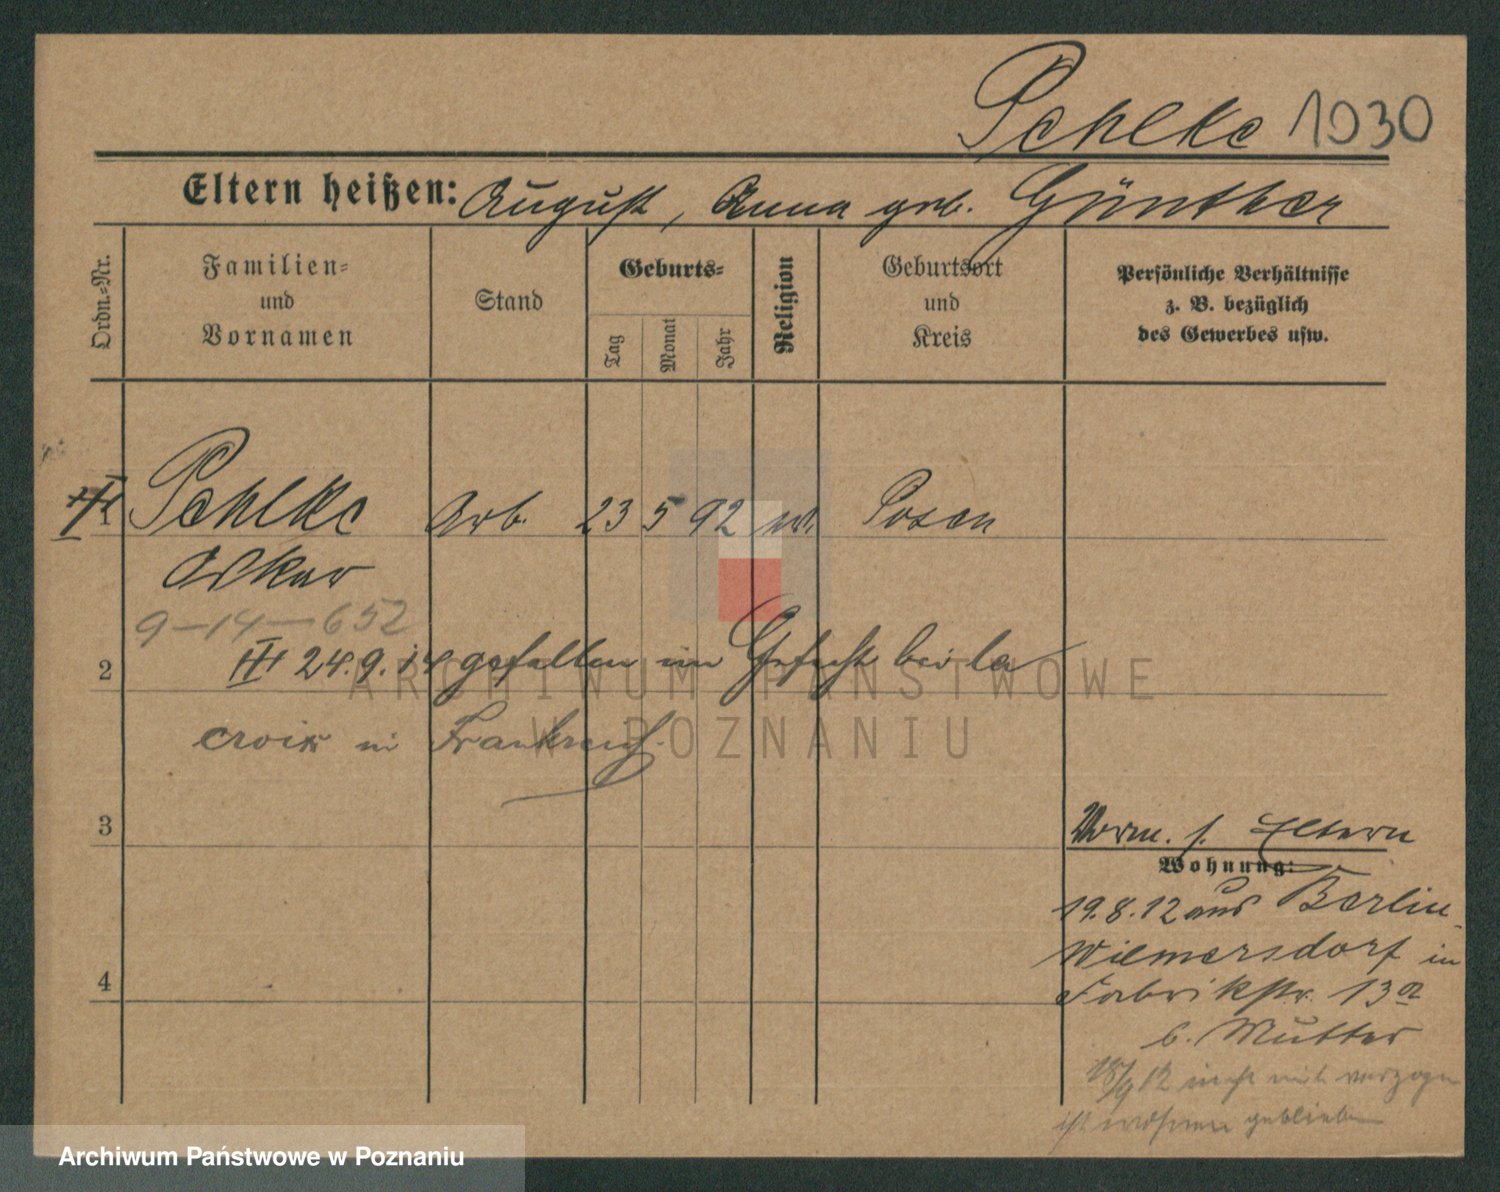 Pehlke 1930
Eltern heißen: August, Anna geb. Günther
Ordn.-Nr.
Familien-
und
Vornamen
Stand
Geburts-
Tag
Monat
Jahr
Religion
Geburtsort
und
Kreis
Persönliche Verhältnisse
z. B. bezüglich
des Gewerbes usw.
1 Pehlke Arb. 23 5 92 Posen
Oskar
9-14-652
2 24.9.14 gefallen im Gefecht bei la
croix in Frankreich.
3
Vorm. s. Eltern
Wohnung:
19.8.12 aus Berlin-
Wilmersdorf in
Fabrikstr. 13a
b. Mutter
4
18/9 12 nicht mit verzogen
ist wohnen geblieben
ARCHIWUM PAŃSTWOWE
W POZNANIU
Archiwum Państwowe w Poznaniu